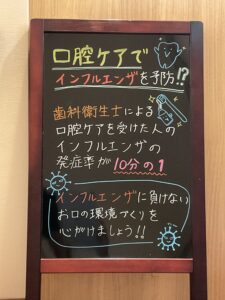 口腔ケアで
インフルエンザを予防!?
歯科衛生士による
口腔ケアを受けた人の
インフルエンザの
発症率が 10分の1
インフルエンザに負けない
お口の環境づくりを
心がけましょう!!